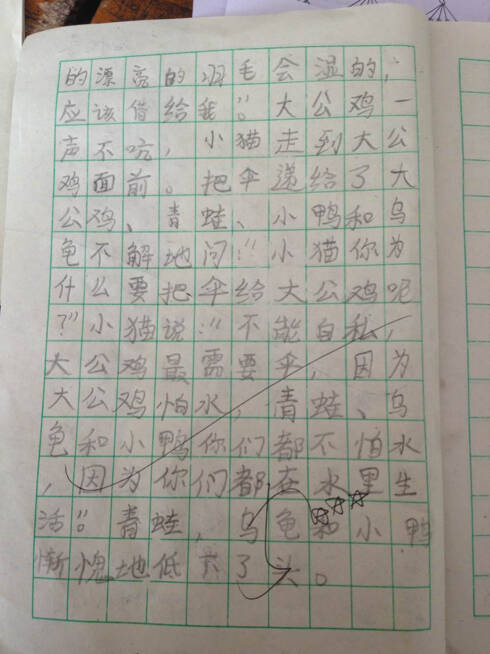 的漂亮的羽毛会湿的,
应该借给我"。大公鸡一
声不吭,小猫走到大公
鸡面前。把伞递给了大
公鸡、青蛙、小鸭和乌
龟不解地问:"小猫你为
什么要把伞给大公鸡呢
?"小猫说:"不能自私,
大公鸡最需要伞,因为
大公鸡怕水,青蛙、乌
龟和小鸭你们都不怕水
,因为你们都在水里生
活"。青蛙,乌龟和小鸭
惭愧地低下了头。